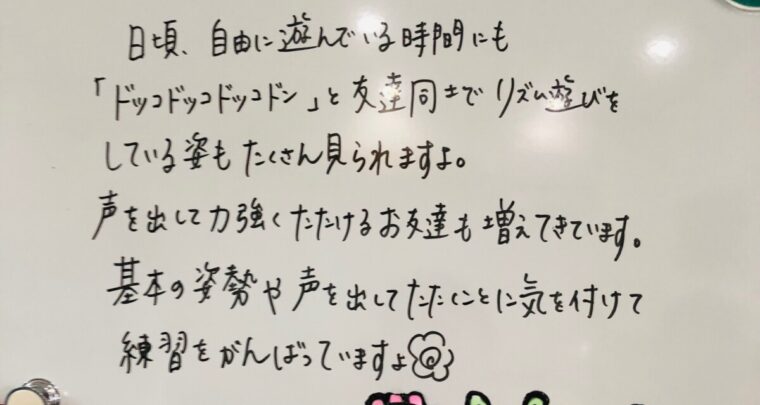 日頃、自由に遊んでいる時間にも
「ドッコドッコドッコドン」と友達同士でリズム遊びを
している姿もたくさん見られますよ。
声を出して力強くたたけるお友達も増えてきています。
基本の姿勢や声を出してたたくことに気を付けて
練習をがんばっていますよ